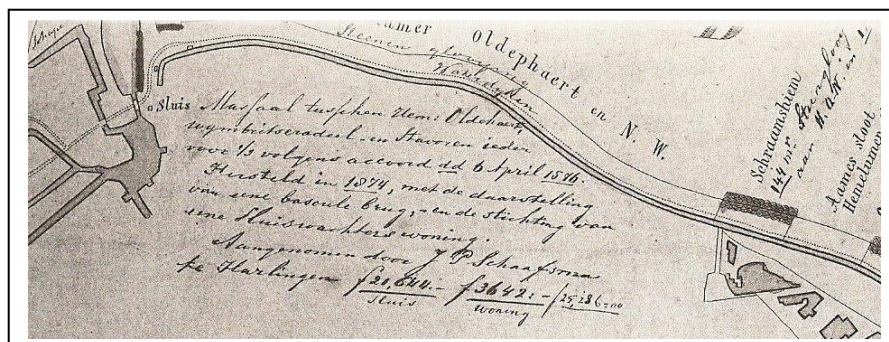 amer Oldephaert en N. W.
Steenen glooying
Hoofdyken
Sluis
Massaal tusschen Hem: Oldephaert,
wymbritseradeel en Stavoren ieder
voor 1/3 volgens accoord dd 6 April 1576.
Hersteld in 1874, met de daarstelling
van eene bascule brug, en de stichting van
eene Sluiswachters woning.
Aangenomen door J P Schaafsma
te Harlingen f 21,644.- f 3642.- f 25,286=00
Sluis woning
Schraamshiem
144 mr
aan H. O. N. en
Aames sloot
Hemelumer